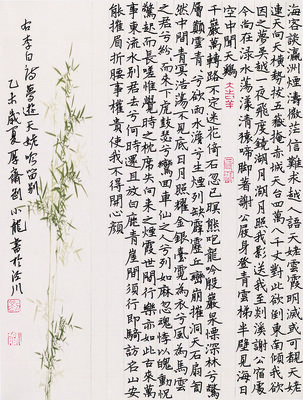 海客談瀛洲煙濤微茫信難求越人語天姥雲霓明滅或可覩天姥
連天向天橫勢拔五嶽掩赤城天台四萬八千丈對此欲倒東南傾我欲
因之夢吳越一夜飛度鏡湖月湖月照我影送我至剡溪謝公宿處
今尚在淥水蕩漾清猿啼腳著謝公屐身登青雲梯半壁見海日
空中聞天鷄
千巖萬轉路不定迷花倚石忽已暝熊咆龍吟殷巖泉慄深林兮驚
層巔雲青青兮欲雨水澹澹兮生煙列缺霹靂丘巒崩摧洞天石扇訇
然中開青冥浩蕩不見底日月照耀金銀臺霓為衣兮風為馬雲
之君兮紛紛而來下虎鼓瑟兮鸞回車仙之人兮列如麻忽魂悸以魄動怳
驚起而長嗟惟覺時之枕席失向來之煙霞世間行樂亦如此古來萬
事東流水別君去兮何時還且放白鹿青崖間須行即騎訪名山安
能摧眉折腰事權貴使我不得開心顏
右李白詩夢遊天姥吟留别
乙未盛夏小龍書於涇川